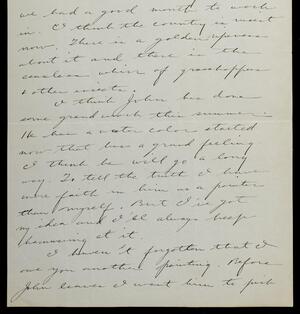 we had a good month to work
in. I think the country is nicest
now. There is a golden ripeness
about it and there is the
ceaseless whirr of grasshoppers
& other insects.
I think John has done
some grand work this summer.
He has a water color started
now that has a grand feeling
I think he will go a long
way. To tell the truth I have
more faith in him as a painter
than myself. But I've got
my idea and I'll always keep
hammering at it.
I haven't forgotten that I
owe you another painting. Before
John leaves I want him to pick